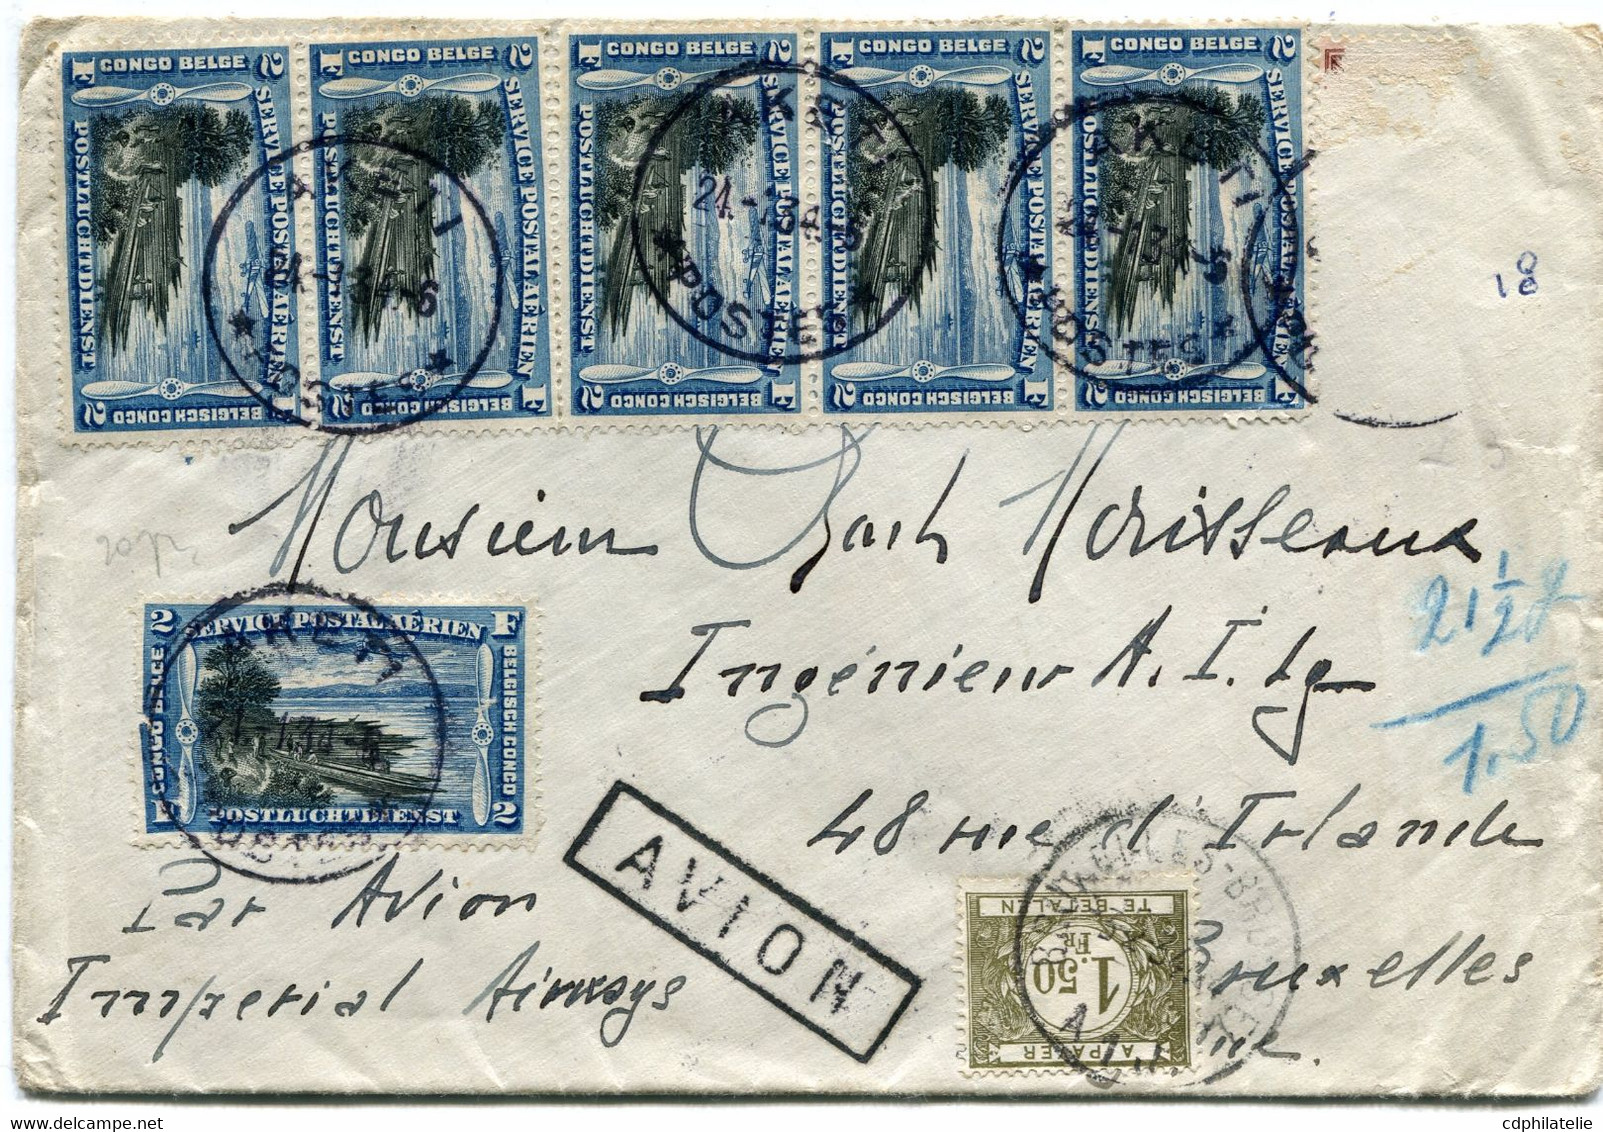 2 F CONGO BELGE 2 F CONGO BELGE 2 F CONGO BELGE 2 F CONGO BELGE 2 F CONGO BELGE
SERVICE POSTAL AÉRIEN SERVICE POSTAL AÉRIEN SERVICE POSTAL AÉRIEN SERVICE POSTAL AÉRIEN SERVICE POSTAL AÉRIEN
POSTLUCHTDIENST POSTLUCHTDIENST POSTLUCHTDIENST POSTLUCHTDIENST POSTLUCHTDIENST
2 F BELGISCH CONGO 2 F BELGISCH CONGO 2 F BELGISCH CONGO 2 F BELGISCH CONGO 2 F BELGISCH CONGO
AKETI AKETI AKETI
24.-1.34.-6 24.-1.34.-6 24.-1.34.-6
* POSTES * * POSTES * * POSTES *
18
Monsieur Morisseaux
21 1/2 g
1.50
Ingénieur A. I. Lg
48 rue d'Irlande
Bruxelles
2 SERVICE POSTAL AÉRIEN F
CONGO BELGE
BELGISCH CONGO
F POSTLUCHTDIENST 2
AKETI
POSTES
Par Avion
Imperial Airways
AVION
TE BETALEN
1.50 FR
A PAYER
BRUXELLES-BRUSSEL
cdphilatelie